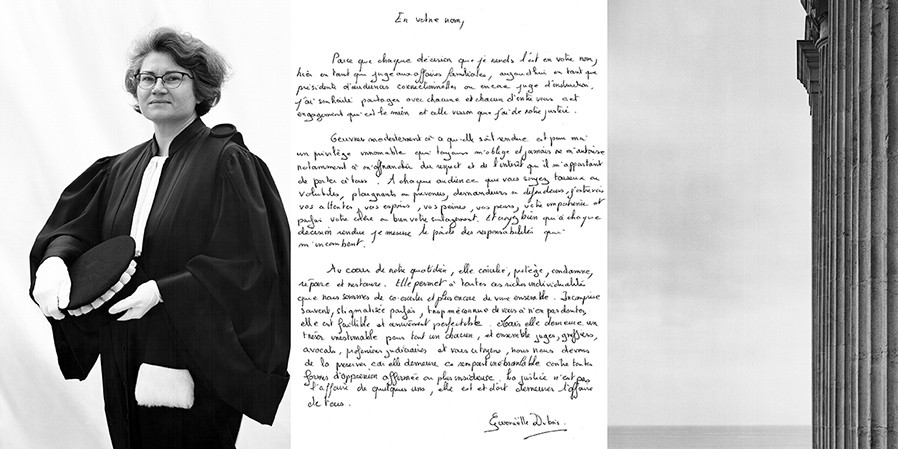 En votre nom,
Parce que chaque décision que je rends l'est en votre nom,
hier en tant que juge aux affaires familiales, aujourd'hui en tant que
présidente d'audiences correctionnelles ou encore juge d'instruction,
j'ai souhaité partager avec chacune et chacun d'entre vous cet
engagement qui est le mien et cette vision que j'ai de notre justice.
Oeuvrer modestement à ce qu'elle soit rendue est pour moi
un privilège innomable qui toujours m'oblige et jamais ne m'autorise
notamment à m'affranchir du respect et de l'intérêt qu'il m'appartient
de porter à tous. A chaque audience que vous soyez taiseux ou
volubiles, plaignants ou prévenus, demandeurs ou défendeurs, j'entrevois
vos attentes, vos espoirs, vos peines, vos peurs, votre impatience et
parfois votre colère ou bien votre soulagement. Et croyez bien qu'à chaque
décision rendue je mesure le poids des responsabilités qui
m'incombent.
Au coeur de notre quotidien, elle concilie, protège, condamne,
répare et restaure. Elle permet à toutes ces riches individualités
que nous sommes de co-exister et plus encore de vivre ensemble. Incomprise
souvent, stigmatisée parfois, trop méconnue de vous à n'en pas douter,
elle est faillible et assurément perfectible. Mais elle demeure un
trésor inestimable pour tout un chacun, et ensemble juges, greffiers,
avocats, professions judiciaires et vous citoyens, nous nous devons
de la préserver car elle demeure ce rempart inébranlable contre toutes
formes d'oppression affirmée ou plus insidieuse. La justice n'est pas
l'affaire de quelques uns, elle est et doit demeurer l'affaire
de tous.
Gwenaëlle Dubois.